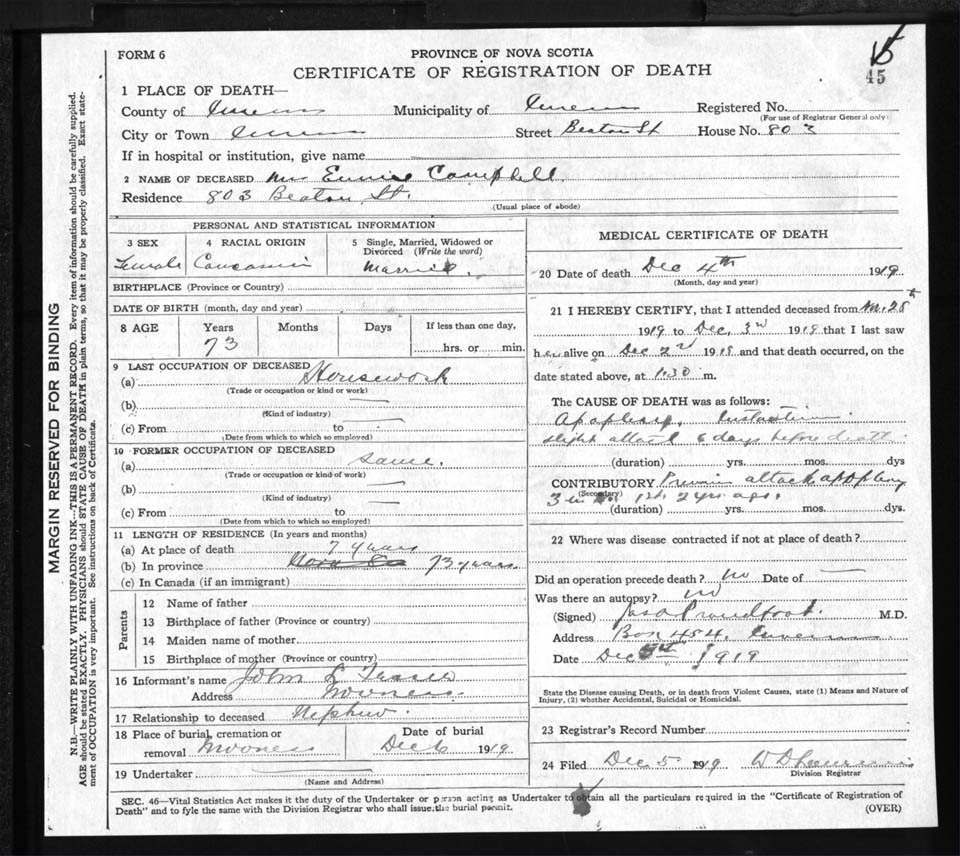 FORM 6
PROVINCE OF NOVA SCOTIA
CERTIFICATE OF REGISTRATION OF DEATH
45
1 PLACE OF DEATH—
County of Municipality of Registered No.
(For use of Registrar General only)
City or Town Street Beaton St House No. 803
If in hospital or institution, give name
2 NAME OF DECEASED Mrs Eunice Campbell.
Residence 803 Beaton St.
(Usual place of abode)
PERSONAL AND STATISTICAL INFORMATION
3 SEX 4 RACIAL ORIGIN 5 Single, Married, Widowed or Divorced (Write the word)
Female Caucasian Married.
BIRTHPLACE (Province or Country)
DATE OF BIRTH (month, day and year)
8 AGE Years Months Days If less than one day,
73 hrs. or min.
9 LAST OCCUPATION OF DECEASED
(a) Housework
(Trade or occupation or kind or work)
(b)
(Kind of industry)
(c) From to
(Date from which to which so employed)
10 FORMER OCCUPATION OF DECEASED
(a) same.
(Trade or occupation or kind of work)
(b)
(Kind of industry)
(c) From to
(Date from which to which so employed)
11 LENGTH OF RESIDENCE (In years and months)
(a) At place of death 7 years
(b) In province 73 years
(c) In Canada (if an immigrant)
Parents
12 Name of father
13 Birthplace of father (Province or country)
14 Maiden name of mother
15 Birthplace of mother (Province or country)
16 Informant's name John L
Address
17 Relationship to deceased Nephew.
18 Place of burial, cremation or removal
Date of burial
Dec 6 1919
19 Undertaker
(Name and Address)
MEDICAL CERTIFICATE OF DEATH
20 Date of death Dec 4th 1919
(Month, day and year)
21 I HEREBY CERTIFY, that I attended deceased from Nov. 28th
1919 to Dec. 3rd 1919 that I last saw
her alive on Dec 2nd 1919 and that death occurred, on the
date stated above, at 1.30 m.
The CAUSE OF DEATH was as follows:
Apoplexy.
slight attack 6 days before death.
(duration) yrs. mos. dys
CONTRIBUTORY attack apoplexy
(Secondary)
2 yrs ago.
(duration) yrs. mos. dys.
22 Where was disease contracted if not at place of death?
Did an operation precede death? no Date of
Was there an autopsy? no
(Signed) Jas A Proudfoot. M.D.
Address Box 484.
Date Dec 5th 1919
State the Disease causing Death, or in death from Violent Causes, state (1) Means and Nature of
Injury, (2) whether Accidental, Suicidal or Homicidal.
23 Registrar's Record Number
24 Filed Dec 5 1919
Division Registrar
SEC. 46—Vital Statistics Act makes it the duty of the Undertaker or person acting as Undertaker to obtain all the particulars required in the "Certificate of Registration of
Death" and to fyle the same with the Division Registrar who shall issue the burial permit.
(OVER)
MARGIN RESERVED FOR BINDING
N.B.—WRITE PLAINLY WITH UNFADING INK—THIS IS A PERMANENT RECORD. Every item of information should be carefully supplied.
AGE should be stated EXACTLY. PHYSICIANS should STATE CAUSE OF DEATH in plain terms, so that it may be properly classified. Exact state-
ment of OCCUPATION is very important. See instructions on back of Certificate.